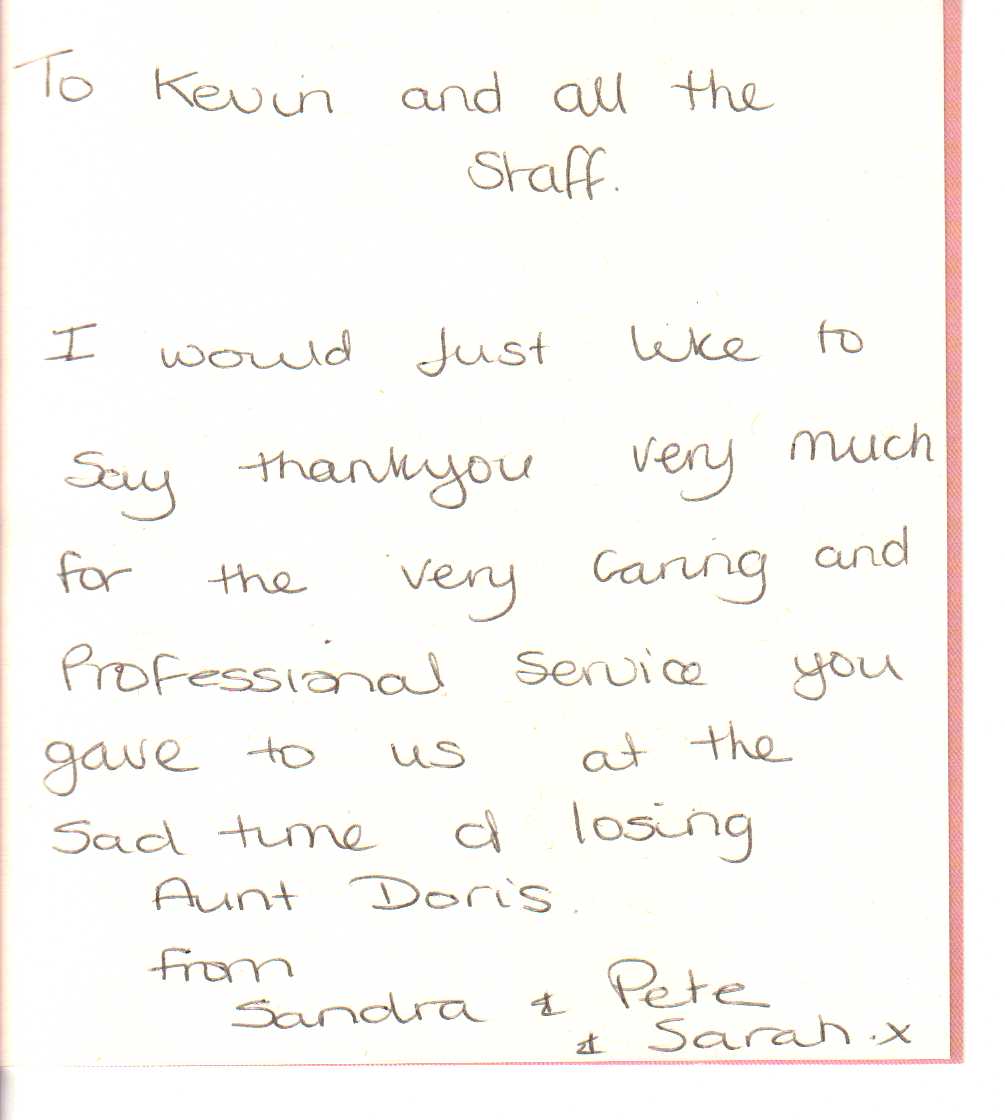 To Kevin and all the
Staff.
I would Just like to
Say thankyou very much
for the very Caring and
Professional Service you
gave to us at the
Sad time of losing
Aunt Doris.
from
Sandra & Pete
& Sarah.x